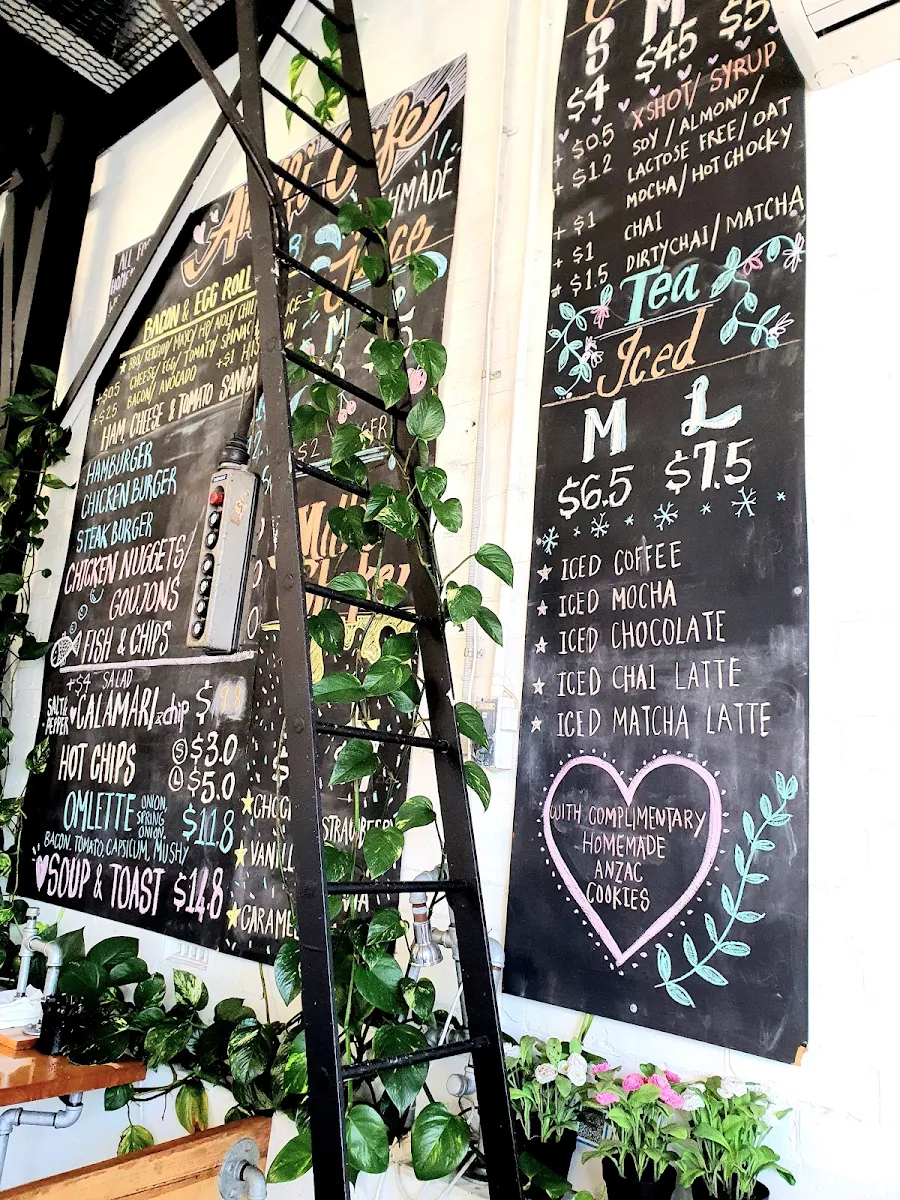 Cafe
HMADE
BACON & EGG ROLL
CHEESE/EGG/TOMATO/
+$0.5
+$2.5 BACON/AVOCADO +$1
HAM, CHEESE & TOMATO
HAMBURGER
CHICKEN BURGER
STEAK BURGER
CHICKEN NUGGETS/
GOUJONS
FISH & CHIPS
+$4 SALAD
SALT & PEPPER CALAMARI & chip
HOT CHIPS S $3.0
L $5.0
OMLETTE ONION, SPRING ONION, $11.8
BACON, TOMATO, CAPSICUM, MUSHY
SOUP & TOAST $14.8
ALL
Juice
$2
STRAWBERRY
VANILL
CARAME
S M
$4 $4.5 $5
+ $0.5 XSHOT/SYRUP
+ $1.2 SOY/ALMOND/
LACTOSE FREE/OAT
MOCHA/HOT CHOCKY
+ $1 CHAI
+ $1
$1.5 DIRTY CHAI/MATCHA
Tea
Iced
M L
$6.5 $7.5
ICED COFFEE
ICED MOCHA
ICED CHOCOLATE
ICED CHAI LATTE
ICED MATCHA LATTE
WITH COMPLIMENTARY
HOMEMADE
ANZAC
COOKIES